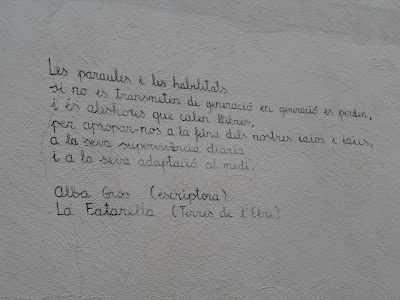 Les paraules i les habilitats
si no es transmeten de generació en generació es perden,
i és aleshores que calen llibres,
per apropar-nos a la feina dels nostres iaios i iaies,
a la seva supervivència diaria
i a la seva adaptació al medi.
Alba Gros (escriptora)
La Fatarella (Terres de l'Ebre)